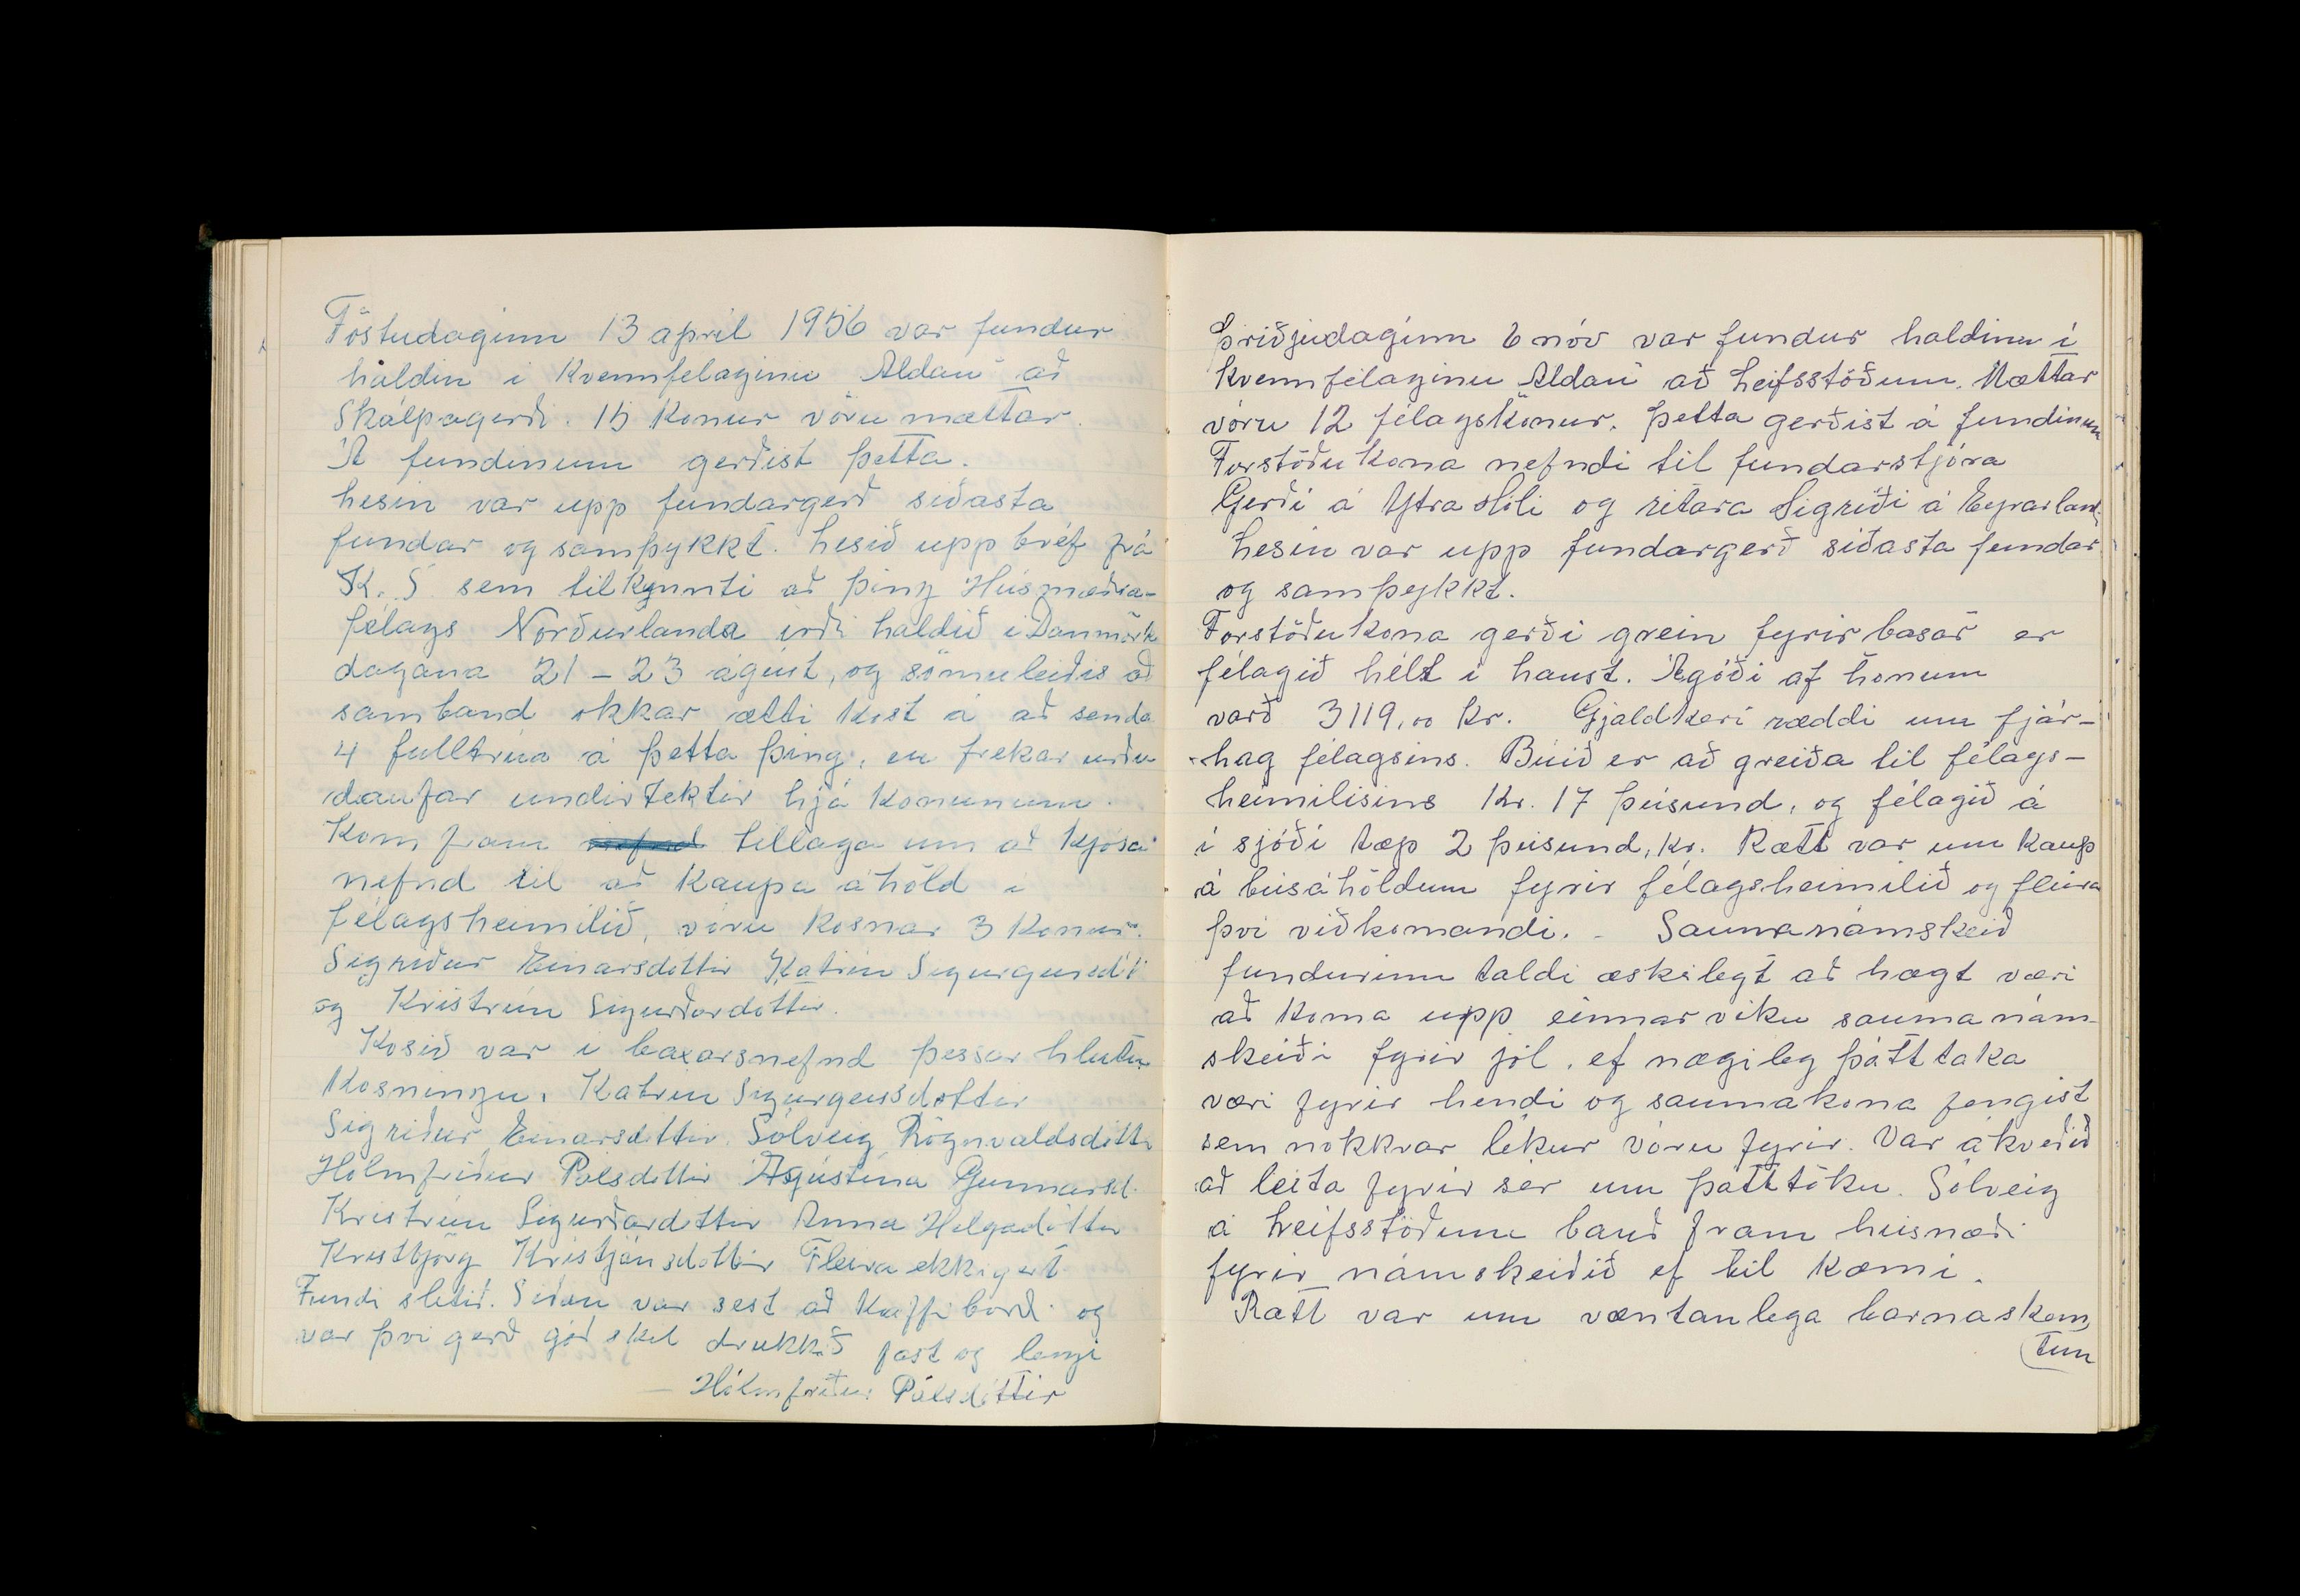 Föstudaginn 13 april 1956 var fundur
haldin i Kvennfelaginu Aldan að
Skálpagerði. 15 Konur vóru mættar.
Á fundinum gerðist þetta.
Lesin var upp fundargerð siðasta
fundar og samþykkt. Lesið upp bréf frá
K. S. sem tilkynnti að þing Húsmæðra-
félags Norðurlanda irði haldið i Danmörk
dagana 21 - 23 ágúst, og sömuleiðis að
samband okkar ætti kost á að senda
4 fulltrúa á þetta þing, en frekar urðu
daufar undirtektir hjá konunum.
Kom fram tillaga um að kjósa
nefnd til að kaupa áhöld i
félagsheimilið, vóru kosnar 3 konur.
Sigriður Einarsdottir Katrin Sigurgeirsd.
og Kristrún Sigurðardottir.
Kosið var i bazarsnefnd þessar hlutu
Kosningu. Katrin Sigurgeirsdottir
Sigriður Einarsdottir, Sólveig Rögnvaldsdóttir
Hólmfriður Pálsdottir Agústina Gunnarsd.
Kristrún Sigurðardottir Anna Helgadóttir
Kristbjörg Kristjánsdottir Fleira ekki gert
Fundi slitið. Siðan var sest að Kaffi borði og
var þvi gerð góð skil drukkið fast og lengi
— Hólmfriður Pálsdóttir
Þriðjudaginn 6 nóv var fundur haldinn i
Kvennfélaginu Aldan að Leifsstöðum. Mættar
vóru 12 félagskonur. Þetta gerðist á fundinum
Forstöðukona nefndi til fundarstjóra
Gerði á Ytra Hóli og ritara Sigriði á Eyrarlandi.
Lesin var upp fundargerð siðasta fundar
og samþykkt.
Forstöðukona gerði grein fyrir basar er
félagið hélt i haust. Ágóði af honum
varð 3119,00 kr. Gjaldkeri ræddi um fjár-
-hag félagsins. Búið er að greiða til félags-
heimilisins Kr. 17 þúsund, og félagið á
i sjóði tæp 2 þúsund, kr. Rætt var um kaup
á búsáhöldum fyrir félagsheimilið og fleira
þvi viðkomandi. - Saumanámskeið
fundurinn taldi æskilegt að hægt væri
að koma upp einnar viku saumanám-
skeiði fyrir jól, ef nægileg þátttaka
væri fyrir hendi og saumakona fengist
sem nokkrar likur vóru fyrir. Var ákveðið
að leita fyrir sér um þátttöku. Sólveig
á Leifsstöðum bauð fram húsnæði
fyrir námskeiðið ef til kæmi.
Rætt var um væntanlega barnaskem
tun